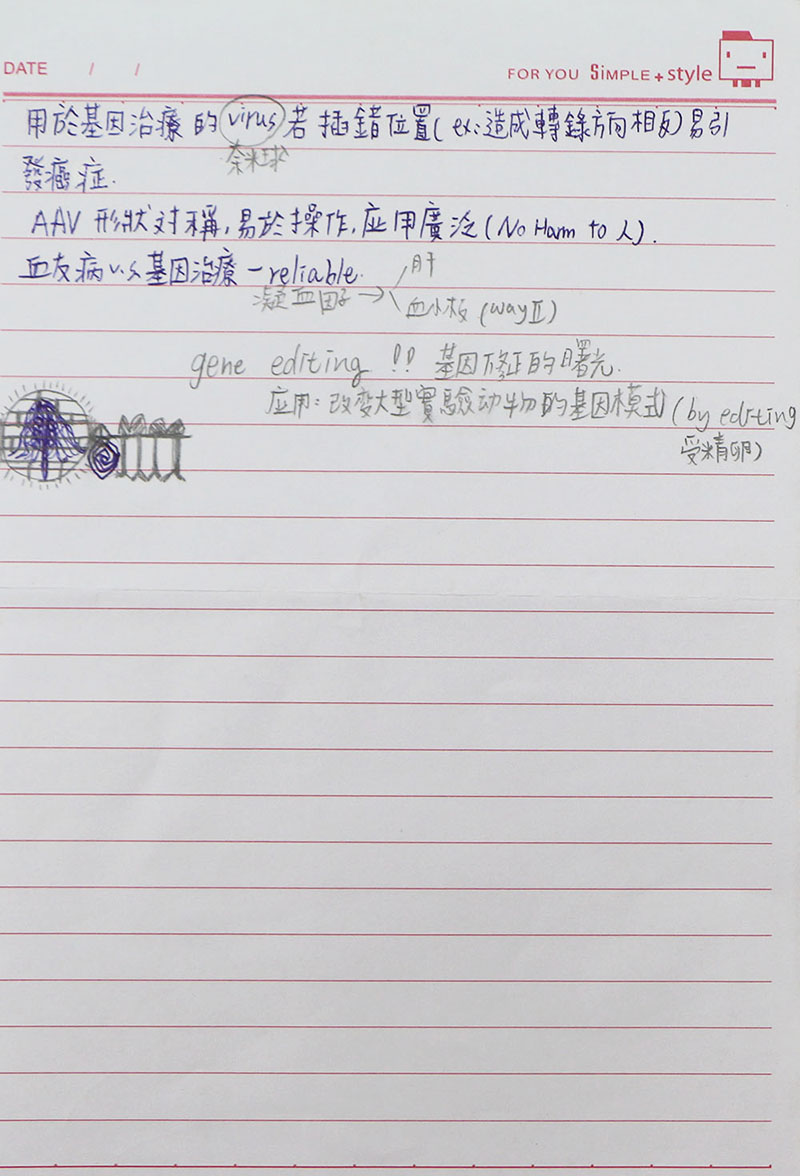 DATE / /
FOR YOU SiMPLE + style
用於基因治療的 virus 若插錯位置(ex:造成轉錄方向相反)易引
奈米球
發癌症.
AAV 形狀对稱,易於操作,应用廣泛(No Harm to 人).
血友病 v.s 基因治療 — reliable.
凝血因子 → 肝
血小板 (way II)
gene editing !! 基因修正的曙光.
应用:改变大型實驗动物的基因模式(by editing
受精卵)